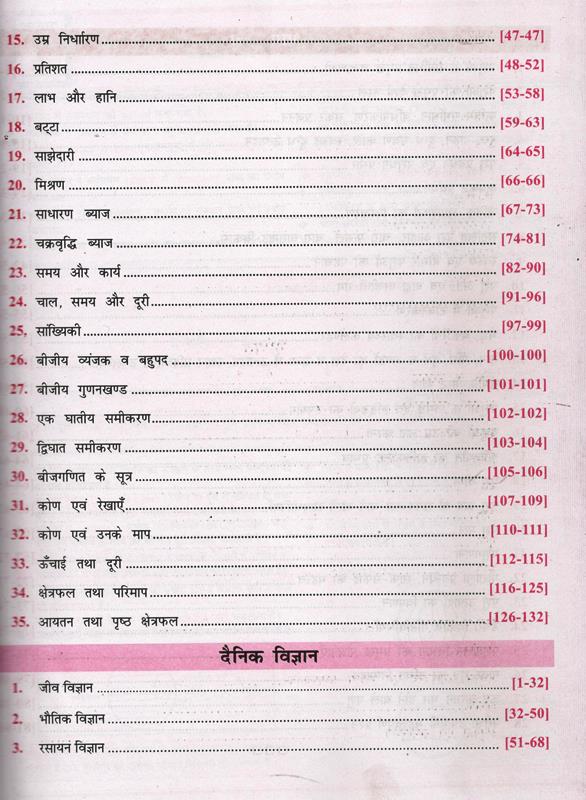 15. उम्र निर्धारण........ [47-47]
16. प्रतिशत........ [48-52]
17. लाभ और हानि........ [53-58]
18. बट्टा........ [59-63]
19. साझेदारी........ [64-65]
20. मिश्रण........ [66-66]
21. साधारण ब्याज........ [67-73]
22. चक्रवृद्धि ब्याज........ [74-81]
23. समय और कार्य........ [82-90]
24. चाल, समय और दूरी........ [91-96]
25. सांख्यिकी........ [97-99]
26. बीजीय व्यंजक व बहुपद........ [100-100]
27. बीजीय गुणनखण्ड........ [101-101]
28. एक घातीय समीकरण........ [102-102]
29. द्विघात समीकरण........ [103-104]
30. बीजगणित के सूत्र........ [105-106]
31. कोण एवं रेखाएँ........ [107-109]
32. कोण एवं उनके माप........ [110-111]
33. ऊँचाई तथा दूरी........ [112-115]
34. क्षेत्रफल तथा परिमाप........ [116-125]
35. आयतन तथा पृष्ठ क्षेत्रफल........ [126-132]
दैनिक विज्ञान
1. जीव विज्ञान........ [1-32]
2. भौतिक विज्ञान........ [32-50]
3. रसायन विज्ञान........ [51-68]